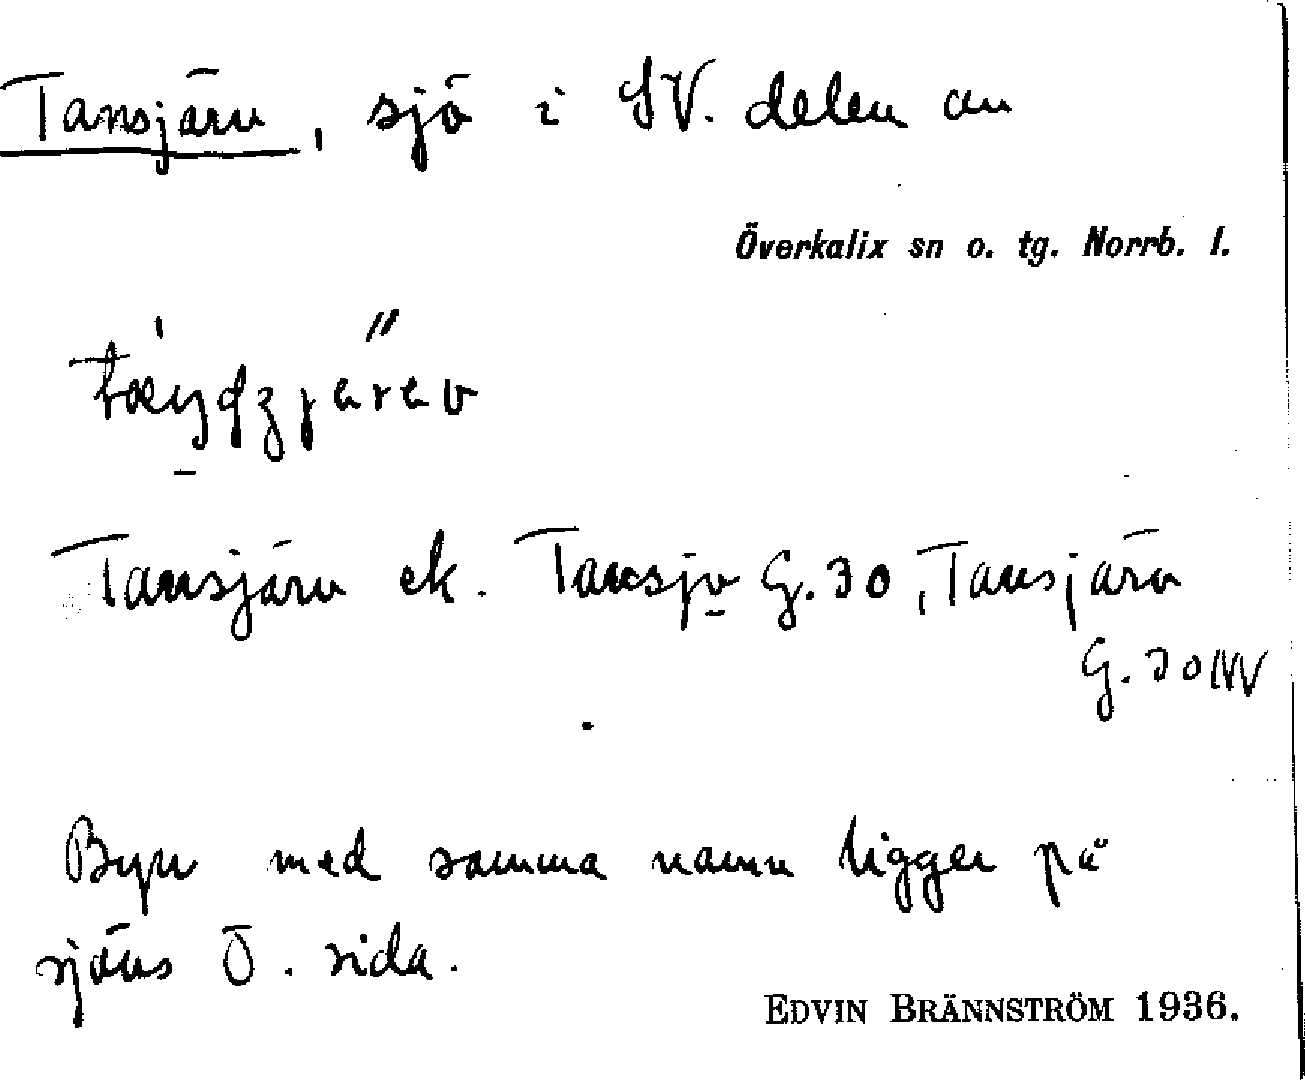 Tansjärv, sjö i SV. delen av
Överkalix sn o. tg. Norrb. l.
Tansjärv ek. Tansjv G. 30, Tansjärv
G. 30 NV
Byn med samma namn ligger på
sjöns Ö. sida.
EDVIN BRÄNNSTRÖM 1936.